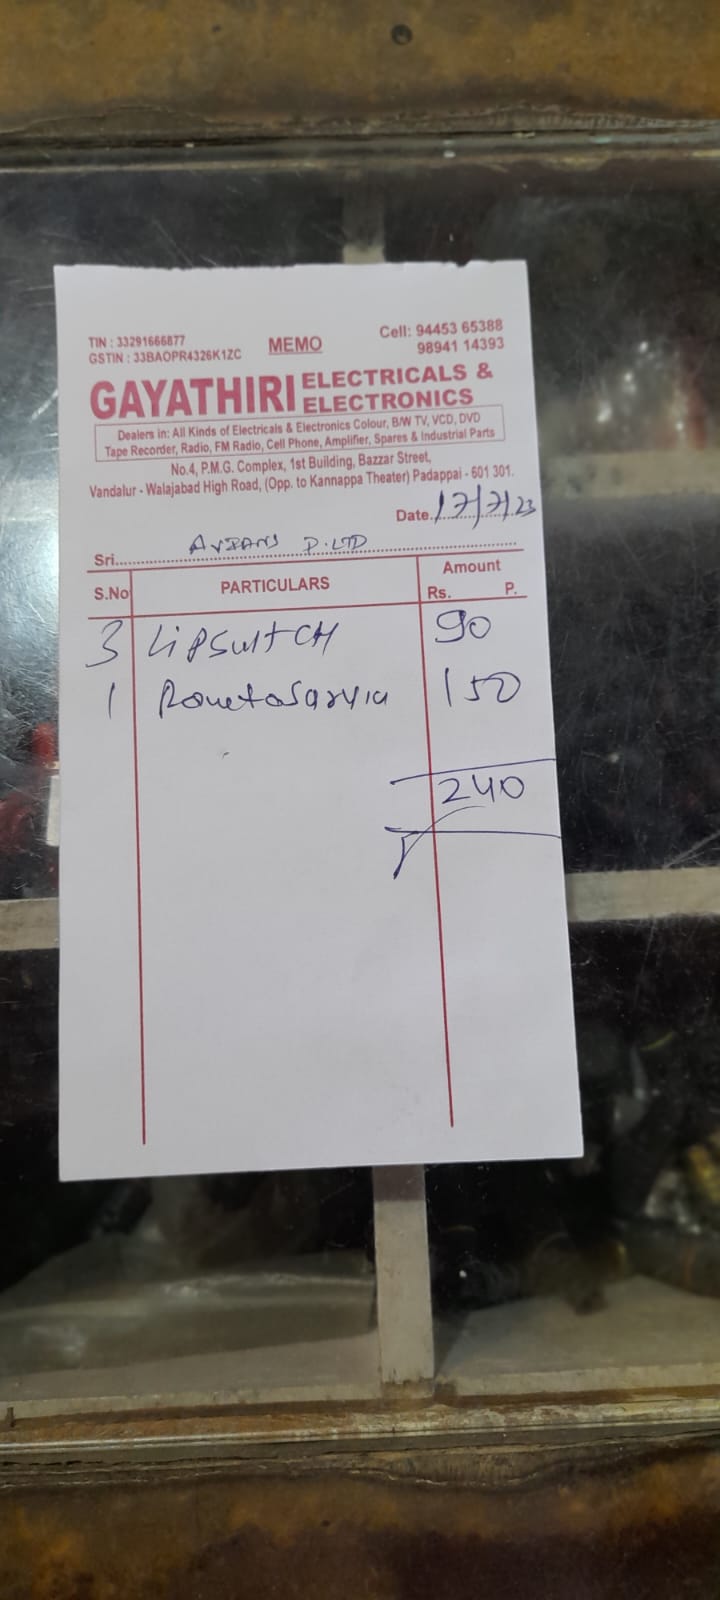 TIN : 33291666877
GSTIN : 33BAOPR4326K1ZC
MEMO
Cell: 94453 65388
98941 14393
GAYATHIRI ELECTRICALS &
ELECTRONICS
Dealers in: All Kinds of Electricals & Electronics Colour, B/W TV, VCD, DVD
Tape Recorder, Radio, FM Radio, Cell Phone, Amplifier, Spares & Industrial Parts
No.4, P.M.G. Complex, 1st Building, Bazzar Street,
Vandalur - Walajabad High Road, (Opp. to Kannappa Theater) Padappai - 601 301.
Date. 17/7/23
Sri. P.LTD
S.No PARTICULARS Amount
Rs. P.
3 LIPSWITCH 90
1 150
240